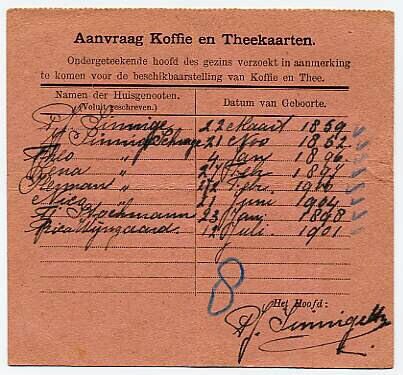 Aanvraag Koffie en Theekaarten.
Ondergeteekende hoofd des gezins verzoekt in aanmerking
te komen voor de beschikbaarstelling van Koffie en Thee.
Namen der Huisgenooten. Datum van Geboorte.
(Voluit geschreven.)
P. J. Sinnige 22 Maart 1859
Sinnige Schrage 21 Nov 1852
Theo " 4 Jan 1896
" 21 Febr. 1897
Herman " Febr. 1900
Nico " 21 Juni 1904
Stockmann 23 Jany 1898
Rica Wijngaard. 12 Juli. 1901
8
Het Hoofd:
P. J. Sinnige